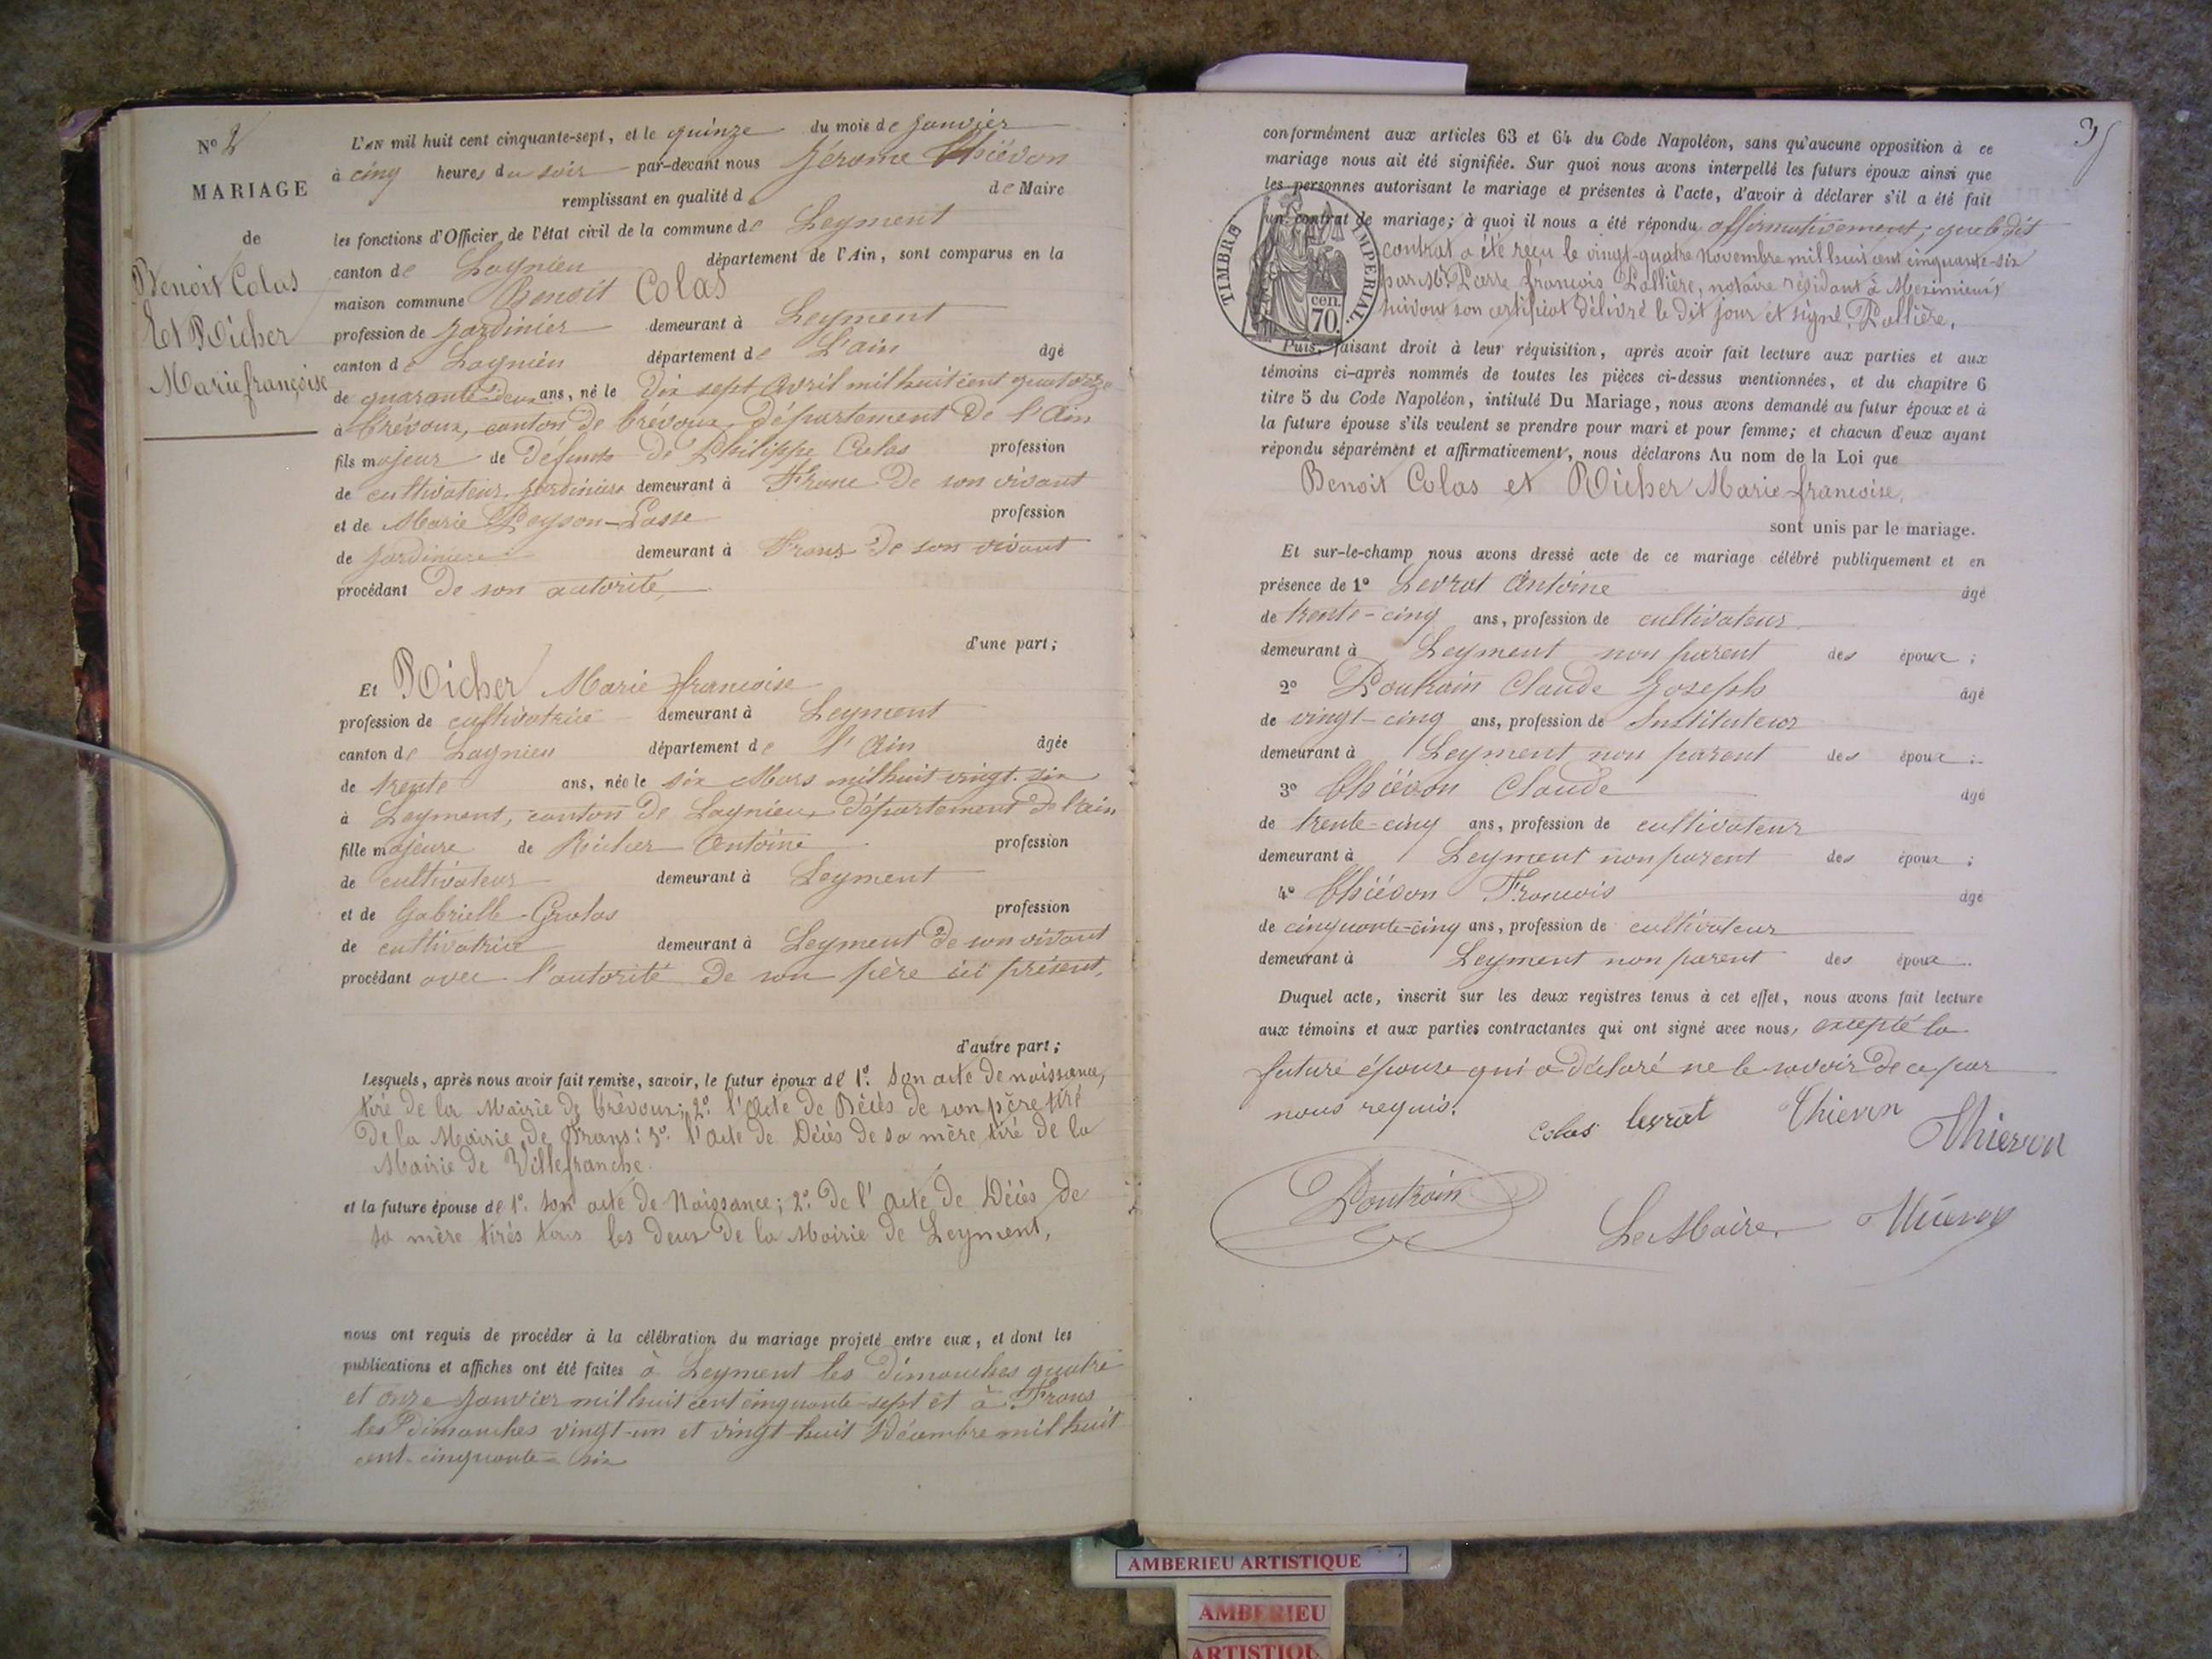 N° 2
MARIAGE
de
Benoit Colas
Et Richer
Marie françoise
L'AN mil huit cent cinquante-sept, et le quinze du mois de Janvier
à cinq heures du soir par-devant nous Jérome Thiévon
remplissant en qualité de Maire
les fonctions d'Officier de l'état civil de la commune de Leyment
canton de Lagnieu département de l'Ain, sont comparus en la
maison commune Benoit Colas
profession de Jardinier demeurant à Leyment
canton de Lagnieu département de L'ain âgé
de quarante-deux ans, né le dix sept Avril mil huit cent quatorze
à Trévoux, canton de Trévoux, département de l'Ain
fils majeur de défunts de Philippe Colas profession
de cultivateur Jardinier demeurant à Frans de son vivant
et de Marie Peyson-Lasse profession
de Jardiniere demeurant à Frans de son vivant
procédant de son autorité,
d'une part;
Et Richer Marie françoise
profession de cultivatrice demeurant à Leyment
canton de Lagnieu département de l'Ain âgée
de trente ans, née le six Mars mil huit vingt-six
à Leyment, canton de Lagnieu, département de l'ain
fille majeure de Richer Antoine profession
de cultivateur demeurant à Leyment
et de Gabrielle Grolas profession
de cultivatrice demeurant à Leyment de son vivant
procédant avec l'autorité de son père ici présent,
d'autre part;
Lesquels, après nous avoir fait remise, savoir, le futur époux de 1°. Son acte de naissance,
tiré de la Mairie de Trévoux; 2°. l'Acte de Décès de son père tiré
de la Mairie de Frans: 3°. l'acte de Décès de sa mère tiré de la
Mairie de Villefranche.
et la future épouse de 1°. son acte de Naissance; 2°. de l'acte de Décès de
sa mère tirés tous les deux de la Mairie de Leyment,
nous ont requis de procéder à la célébration du mariage projeté entre eux, et dont les
publications et affiches ont été faites à Leyment les dimanches quatre
et onze Janvier mil huit cent cinquante-sept et à Frans
les dimanches vingt-un et vingt-huit Décembre mil huit
cent-cinquante-six
conformément aux articles 63 et 64 du Code Napoléon, sans qu'aucune opposition à ce
mariage nous ait été signifiée. Sur quoi nous avons interpellé les futurs époux ainsi que
les personnes autorisant le mariage et présentes à l'acte, d'avoir à déclarer s'il a été fait
un contrat de mariage; à quoi il nous a été répondu affirmativement, que le dit
contrat a été reçu le vingt-quatre Novembre mil huit cent cinquante-six
par Me. Pierre françois Pallière, notaire résidant à Meximieux
suivant son certificat délivré le dit jour et signé, Pallière,
TIMBRE IMPERIAL.
70. cen.
Puis, faisant droit à leur réquisition, après avoir fait lecture aux parties et aux
témoins ci-après nommés de toutes les pièces ci-dessus mentionnées, et du chapitre 6
titre 5 du Code Napoléon, intitulé Du Mariage, nous avons demandé au futur époux et à
la future épouse s'ils veulent se prendre pour mari et pour femme; et chacun d'eux ayant
répondu séparément et affirmativement, nous déclarons Au nom de la Loi que
Benoit Colas et Richer Marie-francoise,
sont unis par le mariage.
Et sur-le-champ nous avons dressé acte de ce mariage célébré publiquement et en
présence de 1° Levrat Antoine âgé
de trente-cinq ans, profession de cultivateur
demeurant à Leyment non parent des époux;
2° Poutrain Claude Joseph âgé
de vingt-cinq ans, profession de Instituteur
demeurant à Leyment non parent des époux;
3° Thiévon Claude âgé
de trente-cinq ans, profession de cultivateur
demeurant à Leyment non parent des époux;
4° Thiévon Francois âgé
de cinquante-cinq ans, profession de cultivateur
demeurant à Leyment non parent des époux.
Duquel acte, inscrit sur les deux registres tenus à cet effet, nous avons fait lecture
aux témoins et aux parties contractantes qui ont signé avec nous, excepté la
future épouse qui a déclaré ne le savoir de ce par
nous requis.
Colas levrat Thievon Thievon
Poutrain
Le Maire, Thiévon
AMBERIEU ARTISTIQUE
AMBERIEU
ARTISTIQU